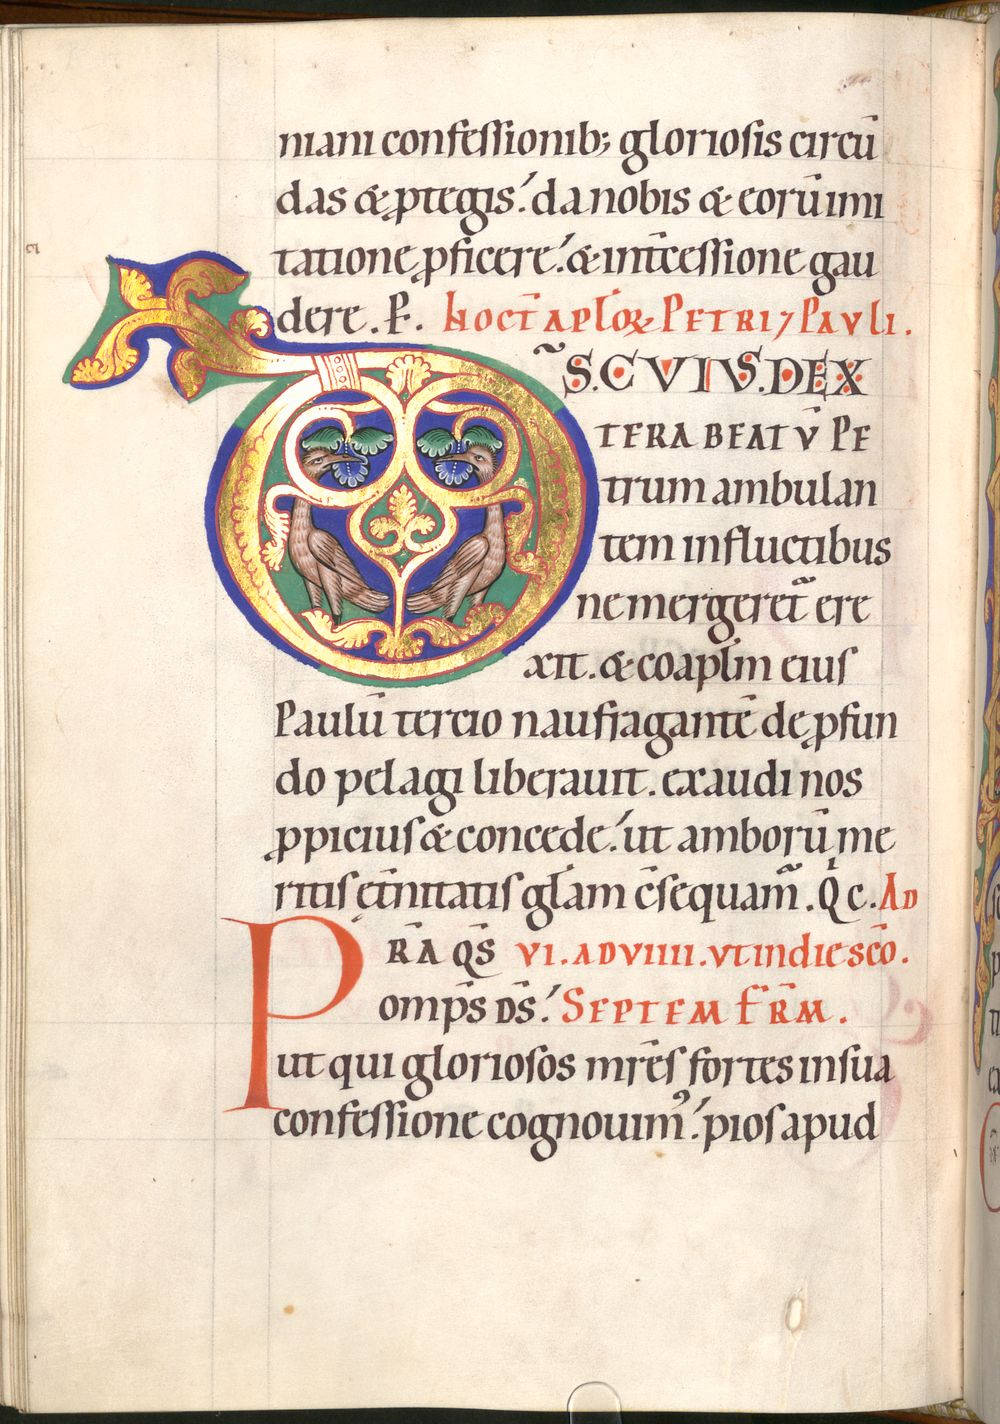 niani confessionib; gloriosis circū
das & ꝓtegis. da nobis & eorū imi
tatione ꝓficere. & int̄cessione gau
dere. P̱. Hoct̄ aplōꝝ Petri ⁊ Pauli.
D̄S. CVIVS. DEX
TERA BEATV̄ PE
trum ambulan
tem influctibus
ne mergeret̄ ere
xit. & coaplm̄ eius
Paulū tercio naufragantē de ꝓfun
do pelagi liberauit. exaudi nos
ꝓpicius & concede. ut amborū me
ritis et̄nitatis glam̄ c̄sequam̄. Q̇ c. AD
P R̄A QS̄ VI. AD VIIII. ut in die sc̄o.
omp̄s DS̄. SEPTEM FR̄M.
ut qui gloriosos mr̄es fortes insua
confessione cognouim᾿. pios apud